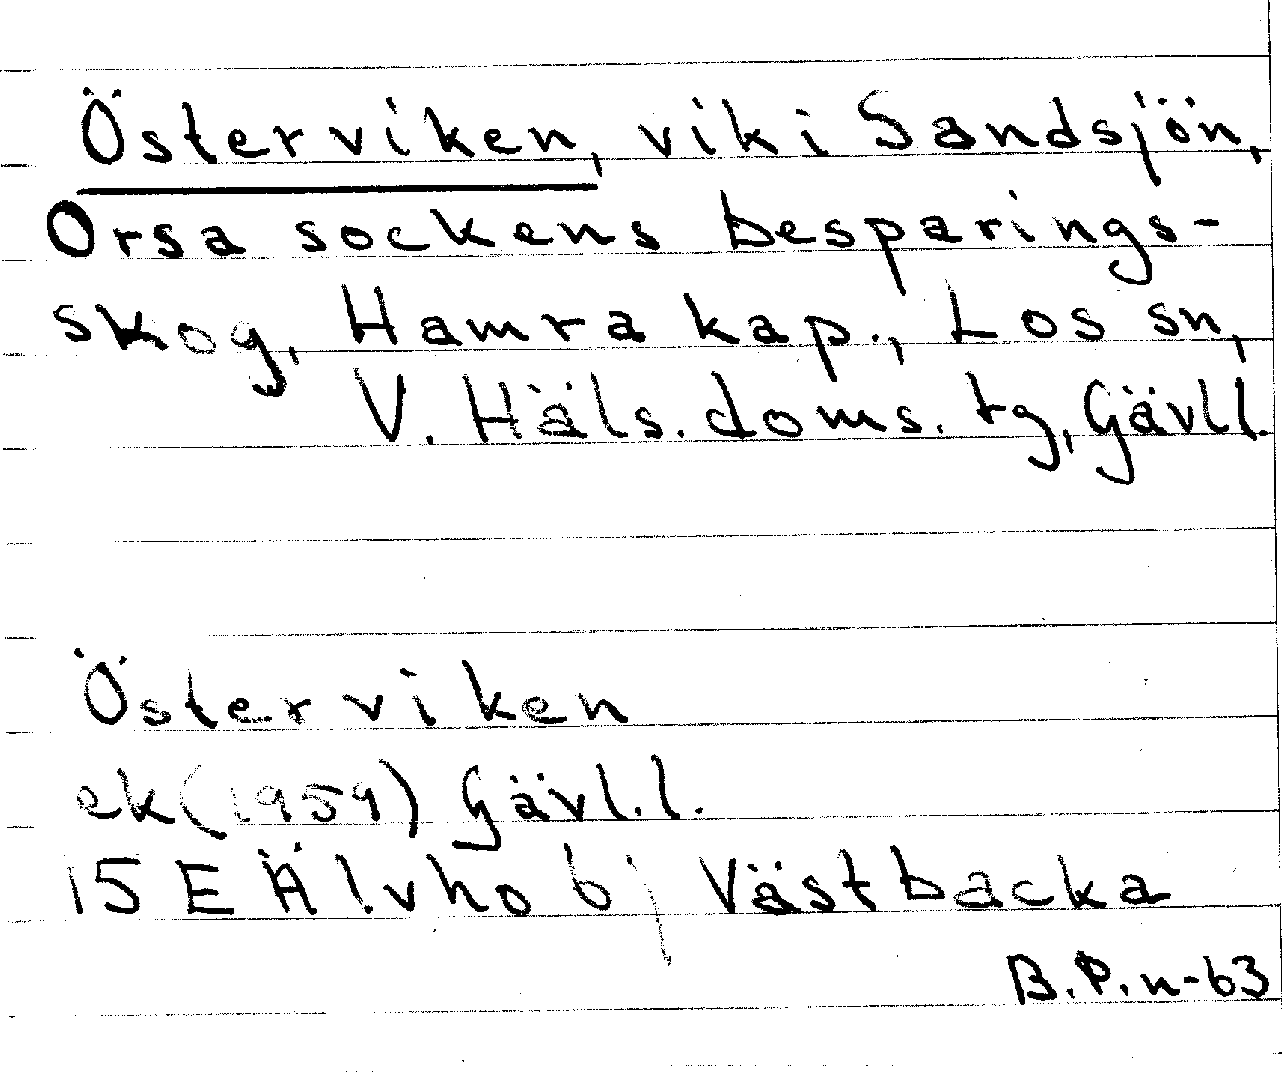 Österviken, vik i Sandsjön,
Orsa sockens besparings-
skog, Hamra kap., Los sn,
V. Häls. doms. tg, Gävl l.
Österviken
ek (1959) Gävl. l.
15 E Älvho bj Västbacka
B.P.n-63